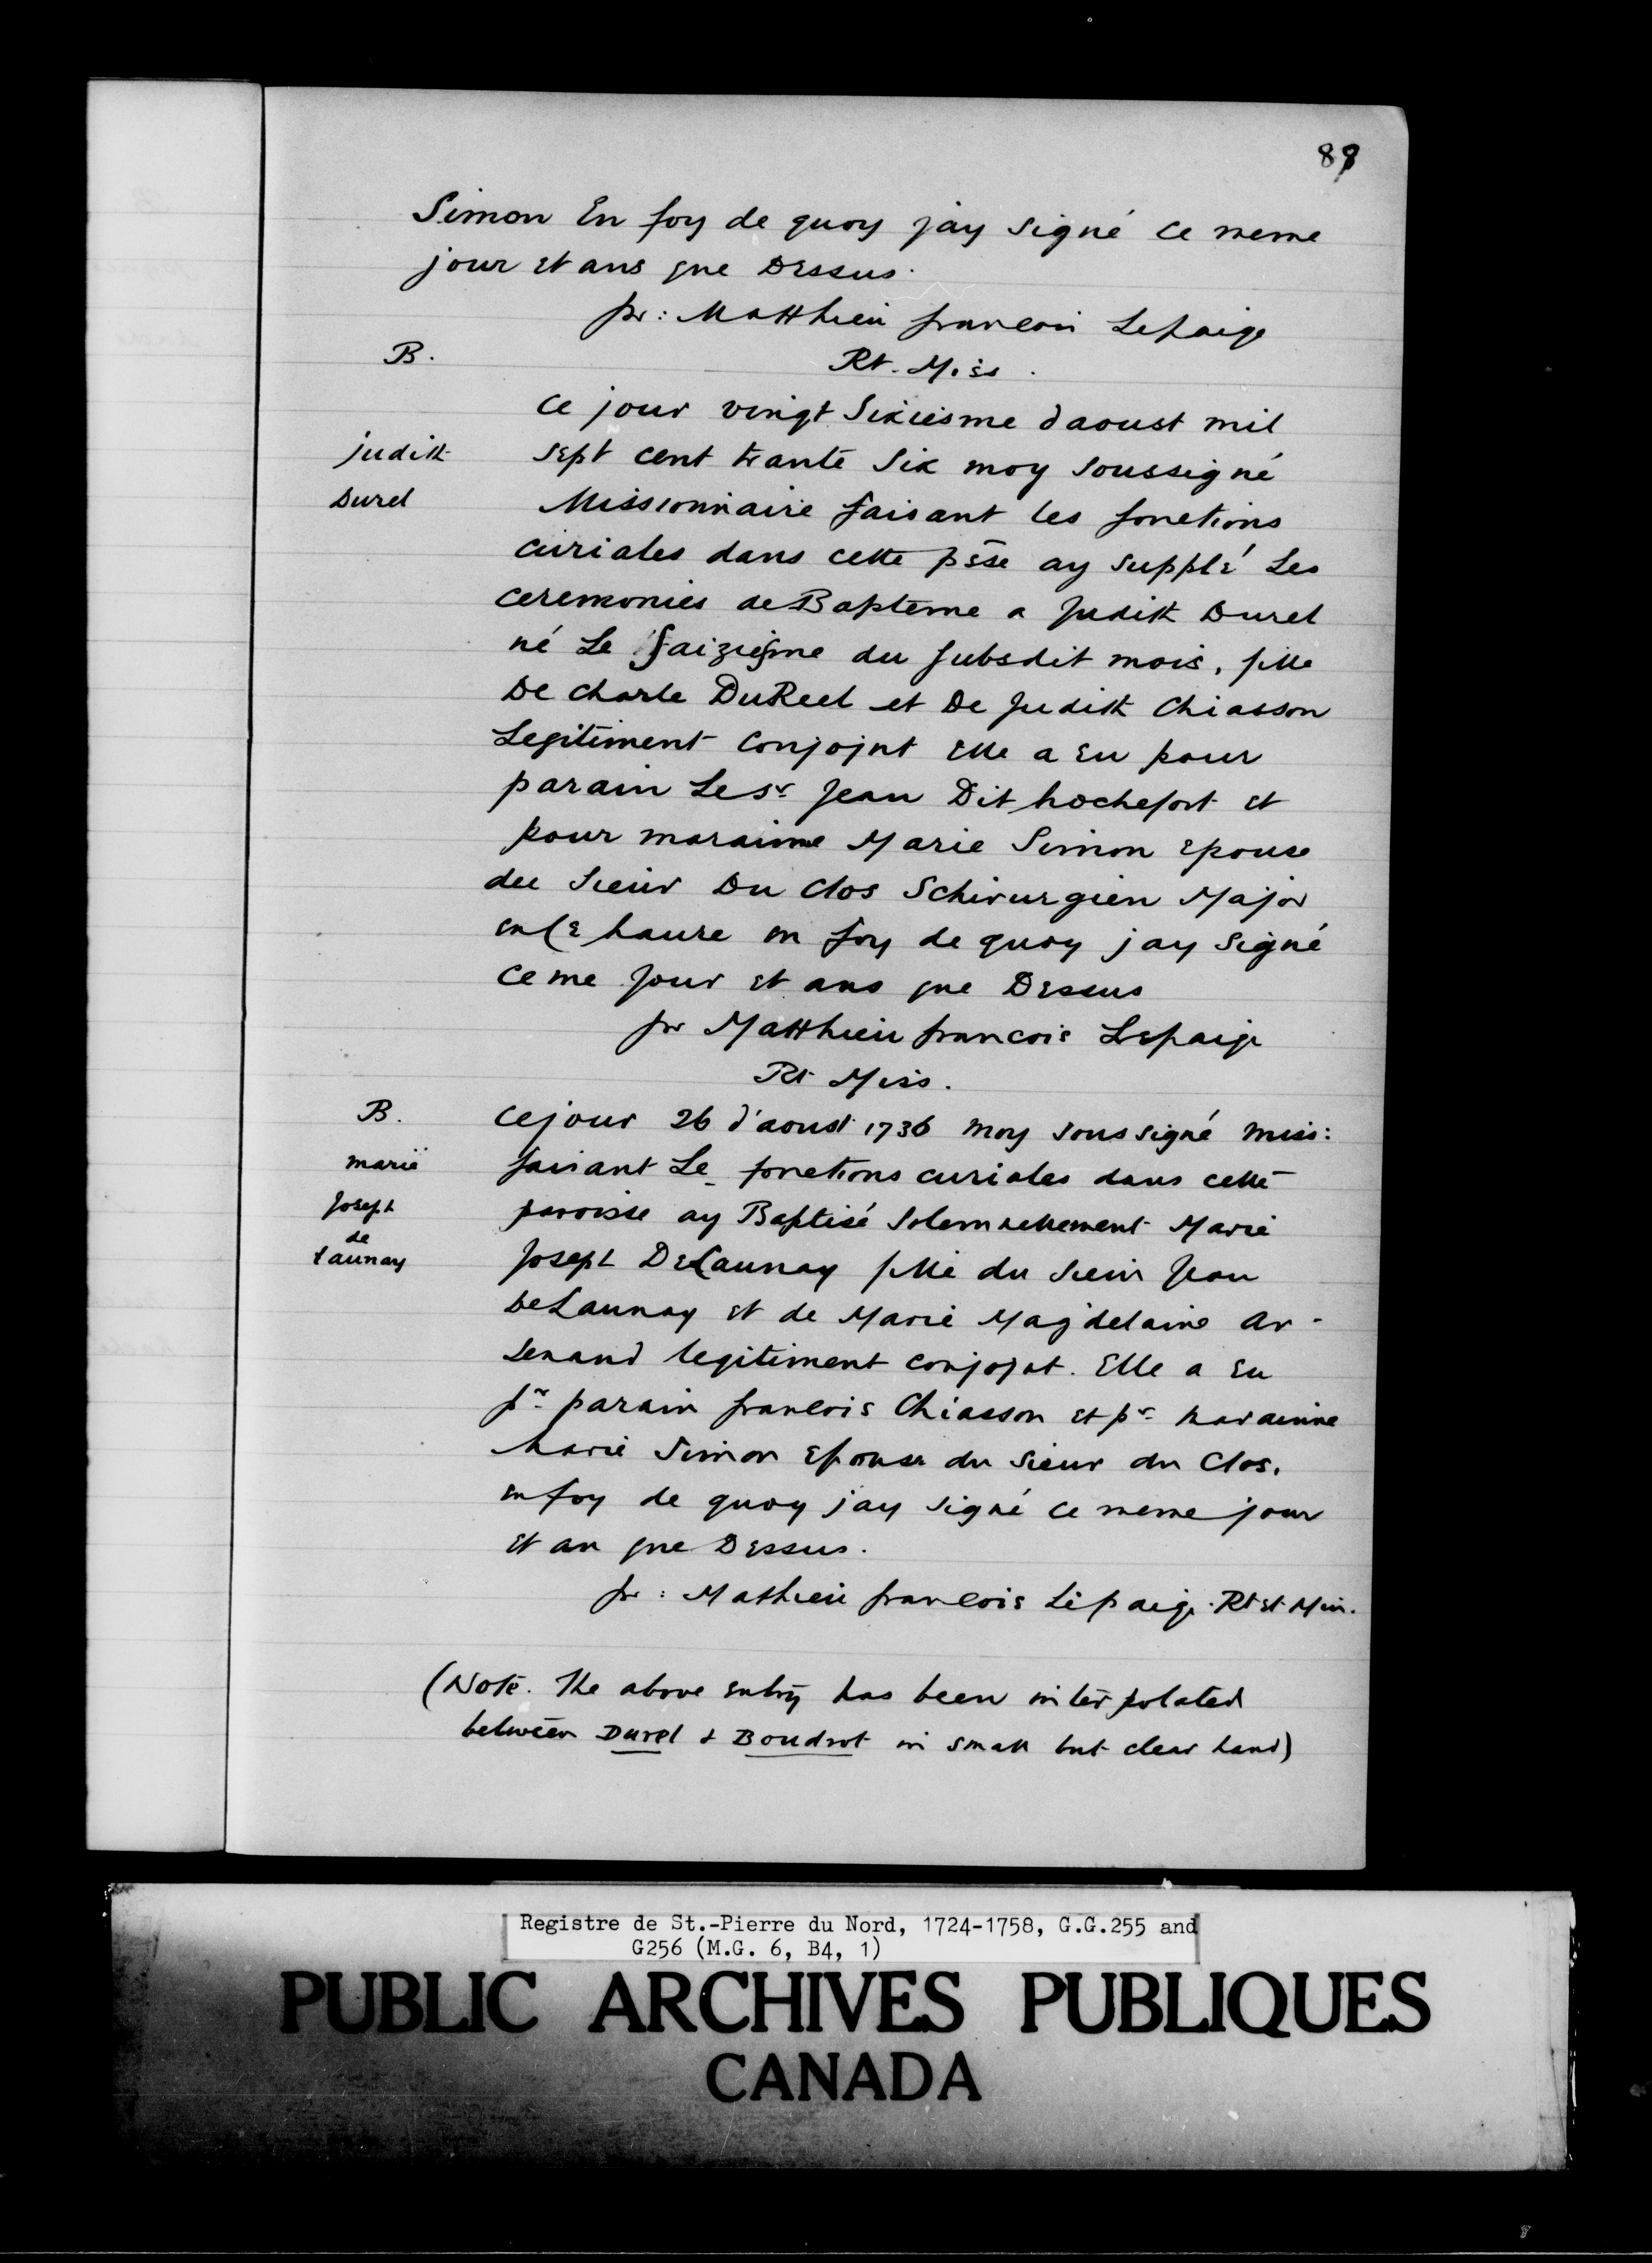 89
Simon En foy de quoy jay signé ce meme
jour et ans que Dessus.
fr: Matthieu francois Lepaige
B.
Rt. Miss.
ce jour vingt Sixiesme daoust mil
judith
sept cent trante Six moy soussigné
Durel
Missionnaire faisant les fonctions
curiales dans cette psse ay supplé Les
ceremonies de Bapteme a Judith Durel
né Le Saiziesme du susdit mois, fille
De charle DuReel et De Judith Chiasson
Legitiment conjojnt Elle a Eu pour
parain Le sr Jean Dit hochefort et
pour marainne Marie Simon Epouse
du Sieur Du Clos Schirurgien Major
en Le haure en foy de quoy jay signé
ce me Jour et ans que Dessus
fr Matthieu francois Lepaige
Rt Miss.
B.
ce jour 26 d'aoust 1736 moy soussigné miss:
marie
faisant Le fonctions curiales dans cette
Joseph
paroisse ay Baptisé Solemnellement Marie
de
Launay
Joseph DeLaunay fille du sieur Jean
DeLaunay et de Marie Magdelaine ar-
senand legitiment conjojnt. Elle a Eu
pr parain francois Chiasson et pr marainne
Marie Simon Epouse du Sieur du Clos.
en foy de quoy jay signé ce meme jour
et an que Dessus.
fr: Mathieu francois Lepaige. Rt et Miss.
(Note. The above entry has been interpolated
between Durel & Boudrot in small but clear hand)
Registre de St.-Pierre du Nord, 1724-1758, G.G.255 and
G256 (M.G. 6, B4, 1)
PUBLIC ARCHIVES PUBLIQUES
CANADA